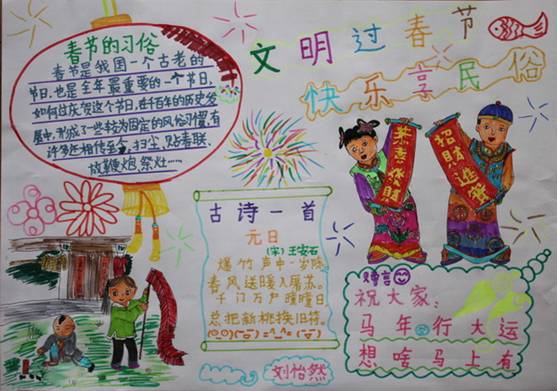 文明过春节
快乐享民俗
春节的习俗
春节是我国一个古老的
节日,也是全年最重要的一个节日,
如何过庆贺这个节日,在千百年的历史发
展中,形成了一些较为固定的风俗习惯,有
许多还相传至今,扫尘,贴春联、
放鞭炮,祭灶……
恭喜發財
招財進寶
古诗一首
元日
(宋)王安石
爆竹声中一岁除
春风送暖入屠苏。
千门万户曈曈日
总把新桃换旧符。
赠言
祝大家:
马年行大运
想啥马上有
刘怡然